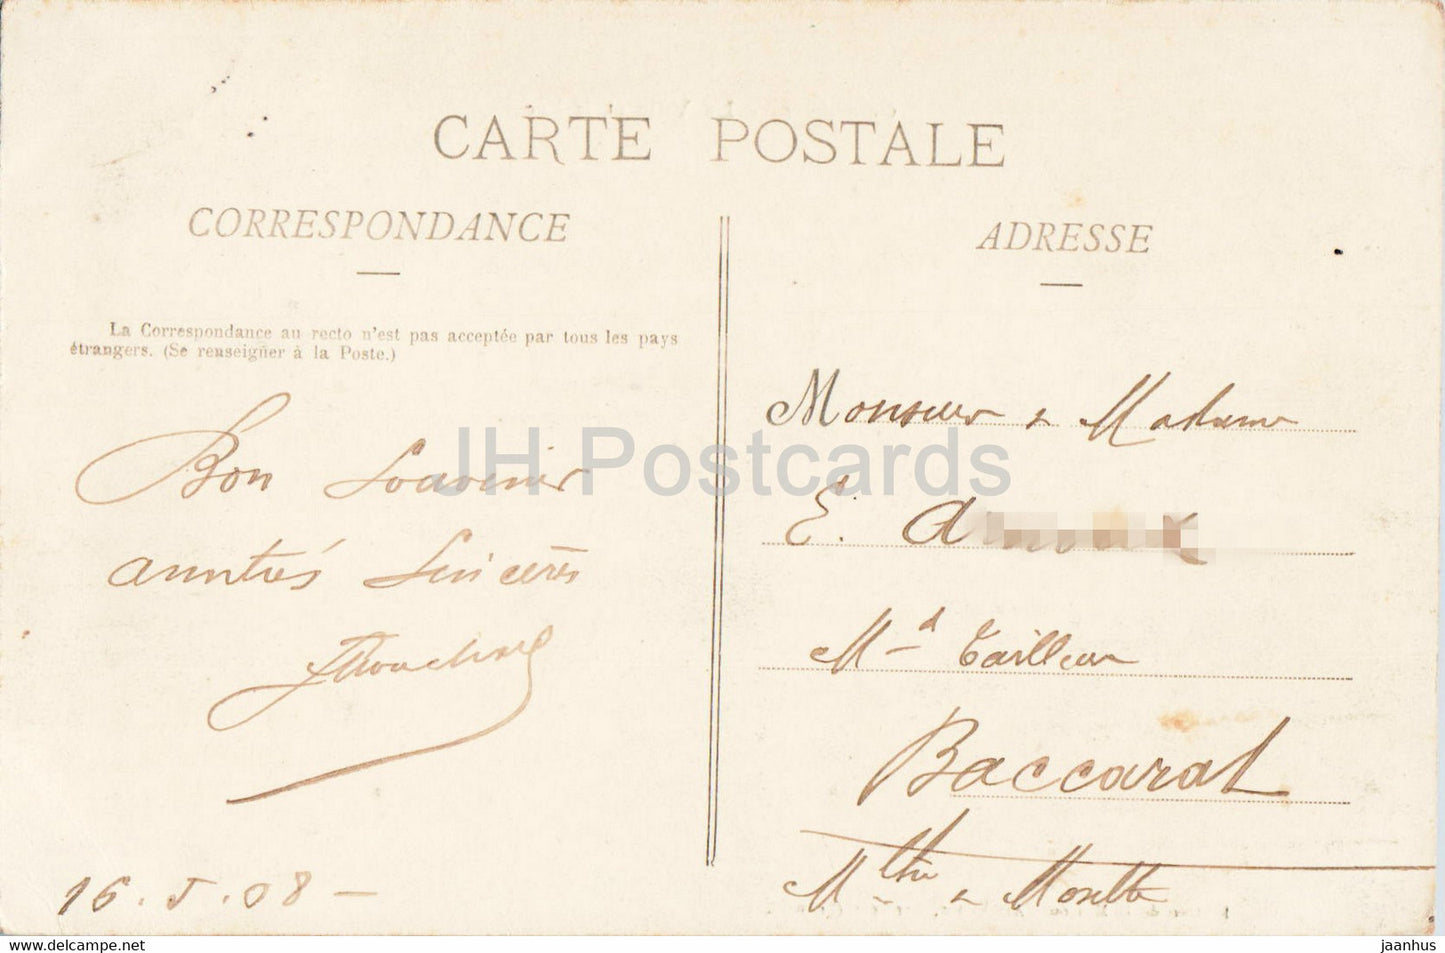 CARTE POSTALE
CORRESPONDANCE
ADRESSE
La Correspondance au recto n'est pas acceptée par tous les pays
étrangers. (Se renseigner à la Poste.)
Bon Souvenir
amitiés Sincères
16.5.08 –
Monsieur & Madame
E.
Md Tailleur
Baccarat
Mthe & Moselle
JH Postcards
www.delcampe.net
jaanhus